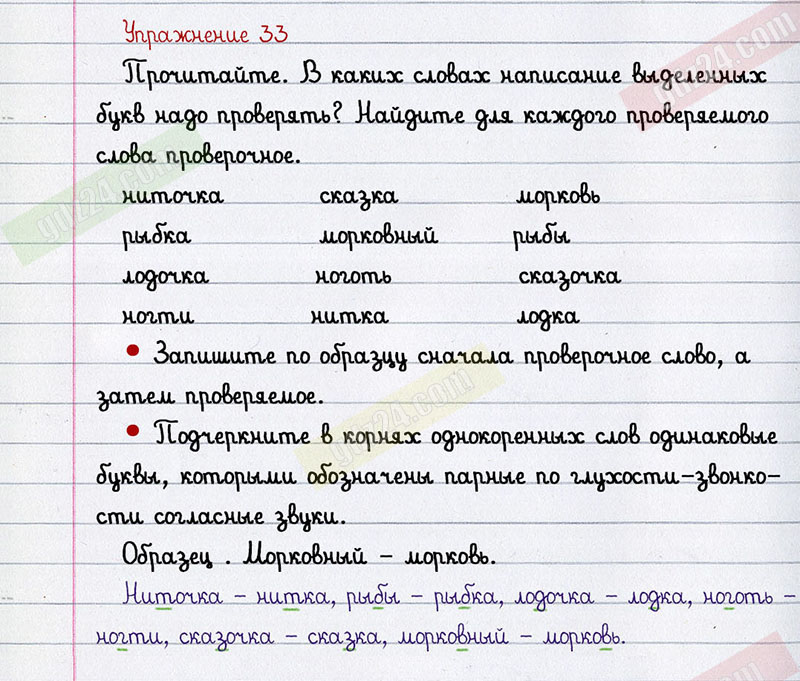 Упражнение 33
Прочитайте. В каких словах написание выделенных
букв надо проверять? Найдите для каждого проверяемого
слова проверочное.
ниточка сказка морковь
рыбка морковный рыбы
лодочка ноготь сказочка
ногти нитка лодка
• Запишите по образцу сначала проверочное слово, а
затем проверяемое.
• Подчеркните в корнях однокоренных слов одинаковые
буквы, которыми обозначены парные по глухости-звонко-
сти согласные звуки.
Образец . Морковный - морковь.
Ниточка - нитка, рыбы - рыбка, лодочка - лодка, ноготь -
ногти, сказочка - сказка, морковный - морковь.
gdz24.com
gdz24.com
gdz24.com